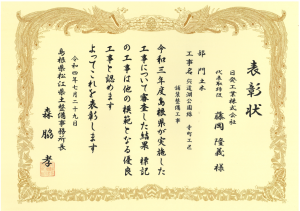 表彰状
日発工業株式会社
代表取締役
藤岡隆義様
部門 土木
工事名 宍道湖公園線 寺町工区
舗装整備工事
令和三年度島根県が実施した
工事について審査した結果 標記
の工事は他の模範となる優良
工事と認めます
よってこれを表彰します
令和四年七月二十九日
島根県松江県土整備事務所長
森脇孝